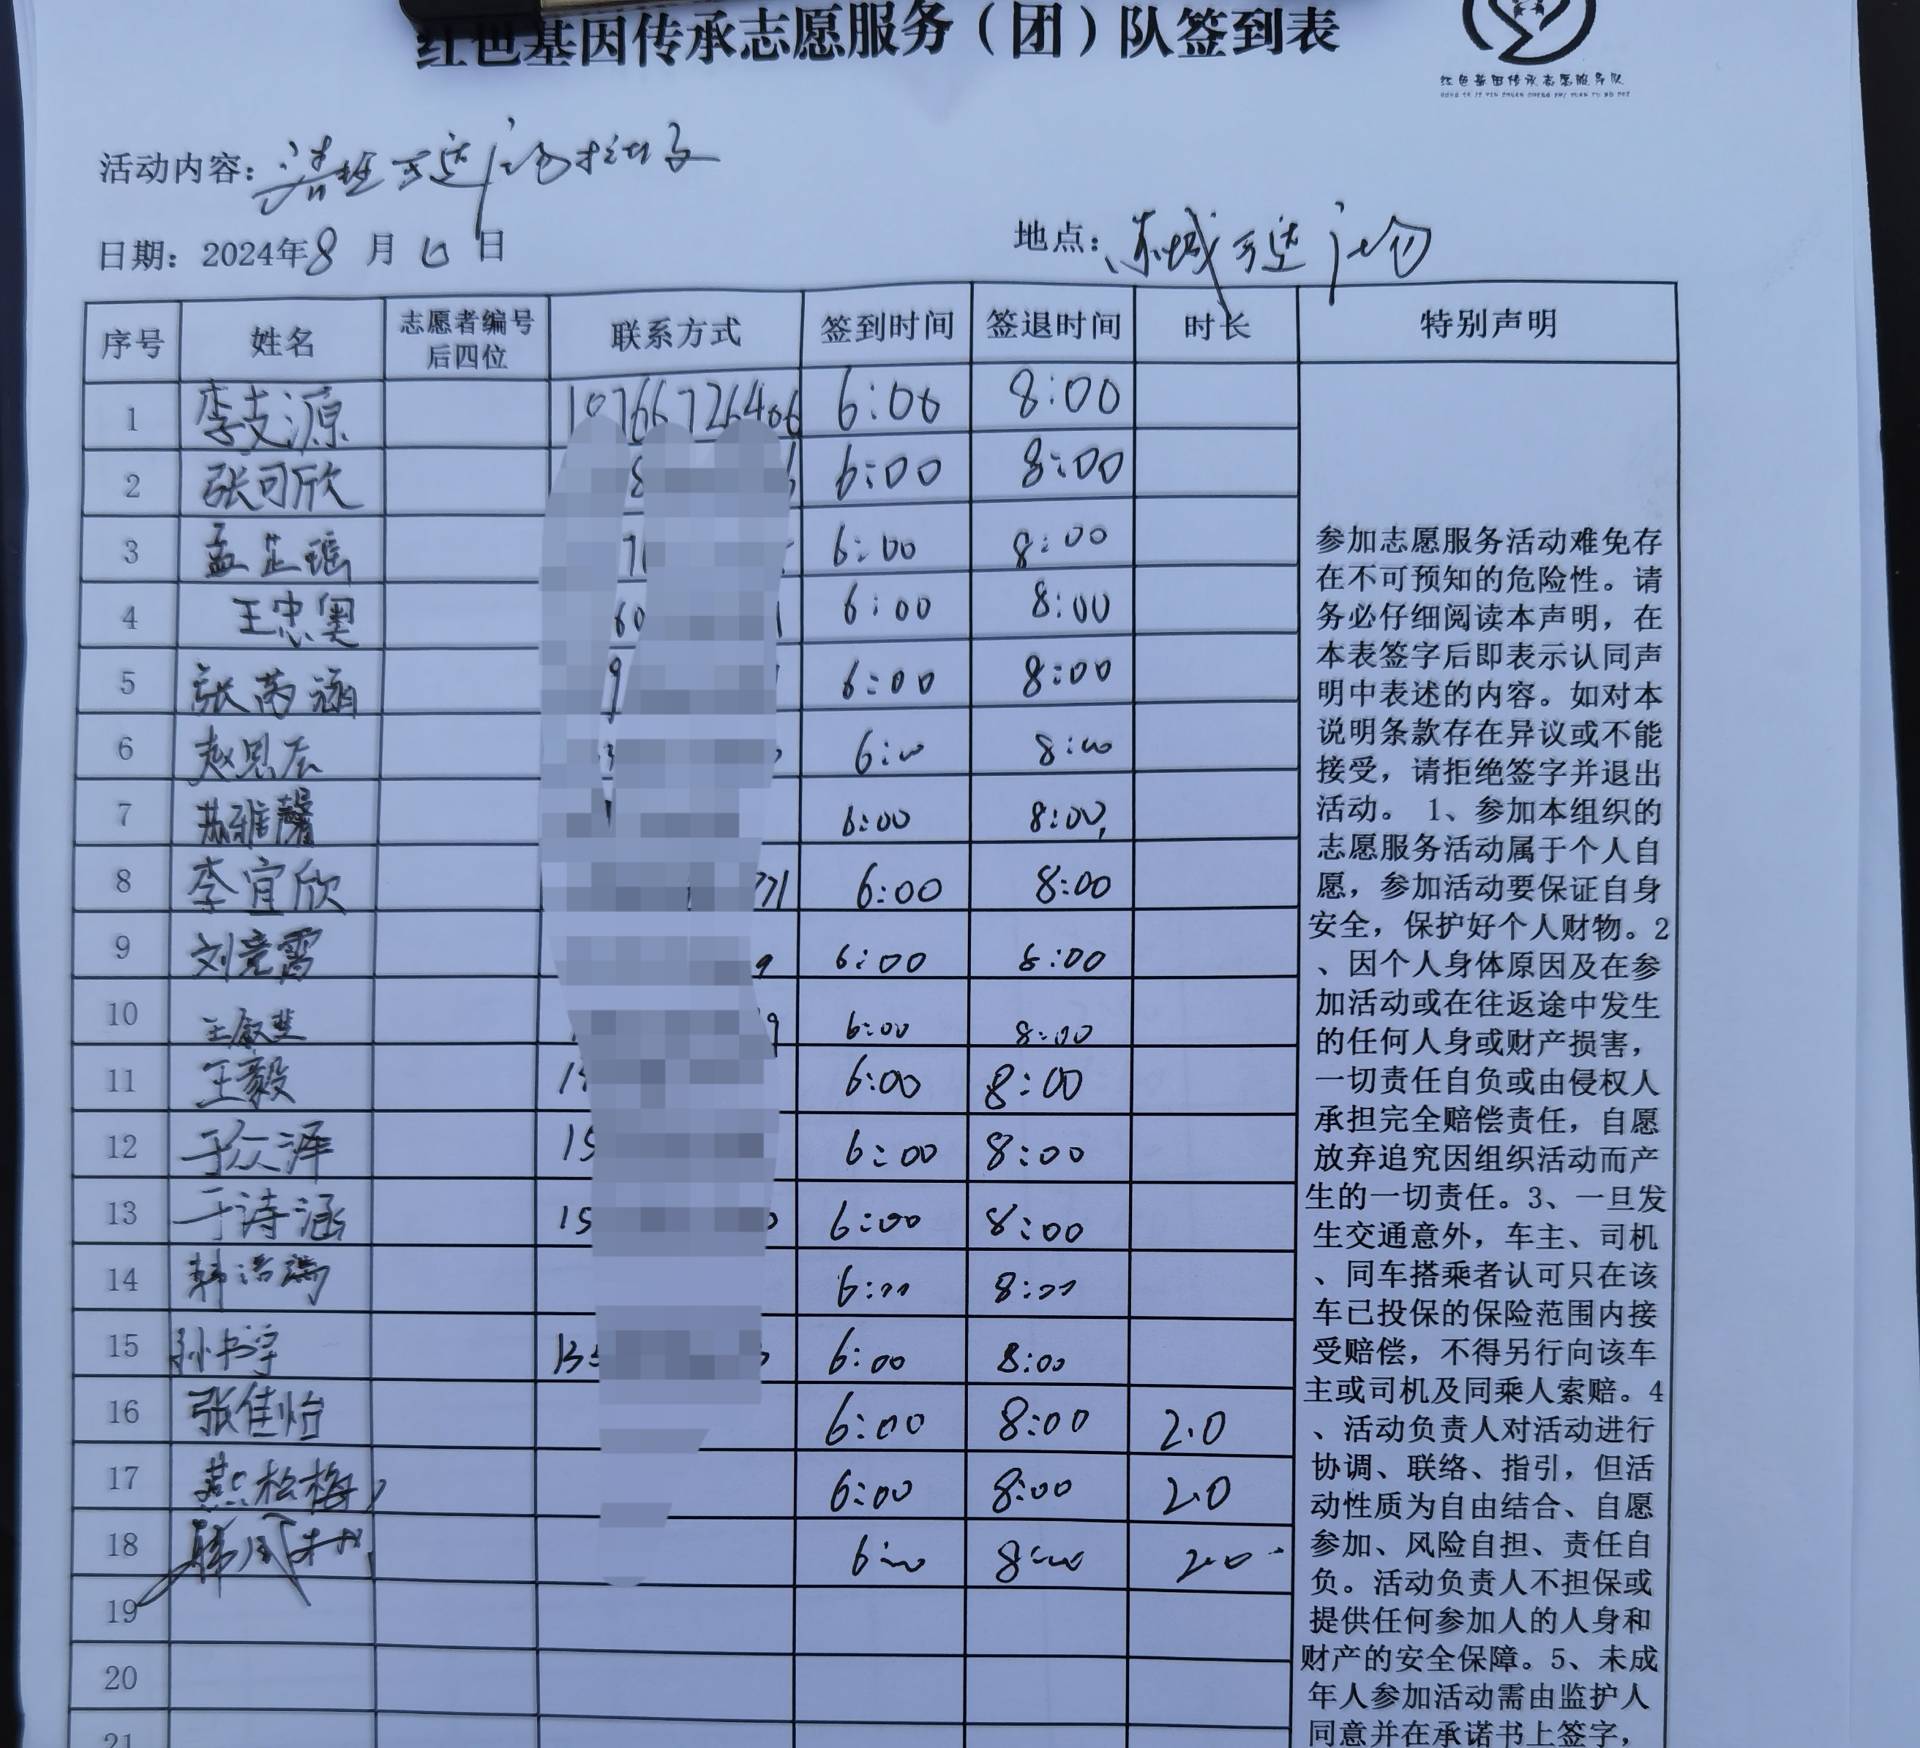 红色基因传承志愿服务（团）队签到表
红色基因传承志愿服务队
活动内容：清理万达广场
日期：2024年8月6日 地点：东城万达广场
序号 姓名 志愿者编号后四位 联系方式 签到时间 签退时间 时长 特别声明
1 李支源 6:00 8:00
2 张可欣 6:00 8:00
3 孟芷瑶 6:00 8:00
4 王忠奥 6:00 8:00
5 张芮涵 6:00 8:00
6 赵思辰 6:00 8:00
7 苏雅馨 6:00 8:00
8 李宜欣 771 6:00 8:00
9 刘竞霄 9 6:00 8:00
10 9 6:00 8:00
11 王毅 6:00 8:00
12 于众泽 15 6:00 8:00
13 于诗涵 15 6:00 8:00
14 韩浩瑞 6:00 8:00
15 孙书宇 6:00 8:00
16 张佳怡 6:00 8:00 2.0
17 燕松梅 6:00 8:00 2.0
18 6:00 8:00 2.0
19
20
21
参加志愿服务活动难免存
在不可预知的危险性。请
务必仔细阅读本声明，在
本表签字后即表示认同声
明中表述的内容。如对本
说明条款存在异议或不能
接受，请拒绝签字并退出
活动。 1、参加本组织的
志愿服务活动属于个人自
愿，参加活动要保证自身
安全，保护好个人财物。2
、因个人身体原因及在参
加活动或在往返途中发生
的任何人身或财产损害，
一切责任自负或由侵权人
承担完全赔偿责任，自愿
放弃追究因组织活动而产
生的一切责任。3、一旦发
生交通意外，车主、司机
、同车搭乘者认可只在该
车已投保的保险范围内接
受赔偿，不得另行向该车
主或司机及同乘人索赔。4
、活动负责人对活动进行
协调、联络、指引，但活
动性质为自由结合、自愿
参加、风险自担、责任自
负。活动负责人不担保或
提供任何参加人的人身和
财产的安全保障。5、未成
年人参加活动需由监护人
同意并在承诺书上签字，